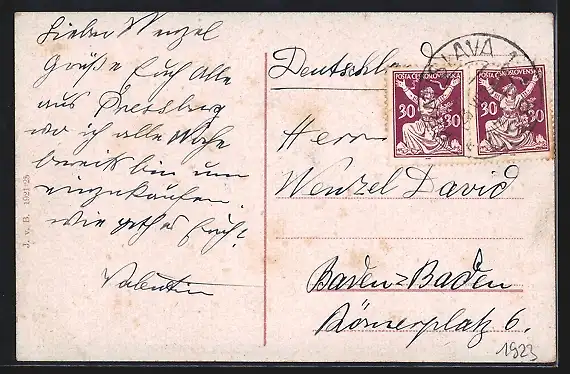 Lieber Wenzel
Grüße Euch Alle
aus Pressburg
wo ich alle Woche
bereits bin um
einzukaufen.
Wie geht es Euch?
Valentin
J. v. B. 1921/25
Deutschl
BRATISLAVA 1
POSTA ČESKOSLOVENSKÁ
30 30
POSTA ČESKOSLOVENSKÁ
30 30
Herrn
Wenzel David
Baden-Baden
Römerplatz 6.
1923